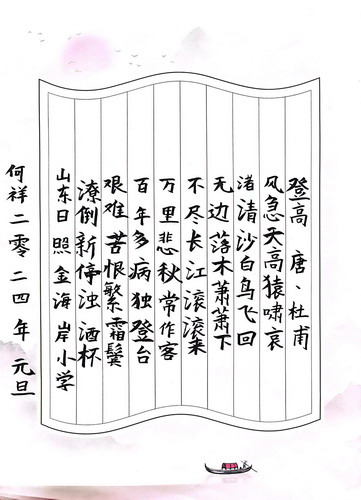 登高 唐、杜甫
风急天高猿啸哀
渚清沙白鸟飞回
无边落木萧萧下
不尽长江滚滚来
万里悲秋常作客
百年多病独登台
艰难苦恨繁霜鬓
潦倒新停浊酒杯
山东日照金海岸小学
何祥二零二四年元旦